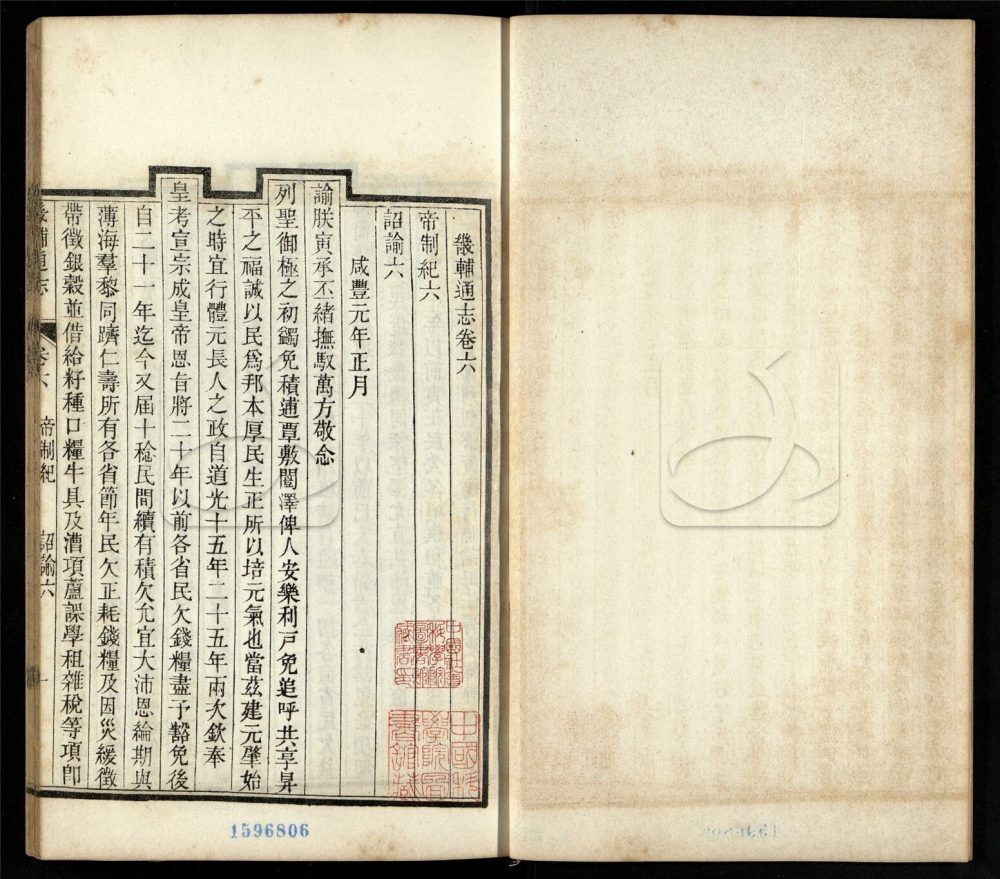 畿輔通志卷六
帝制紀六
詔諭六
咸豐元年正月
諭朕寅承丕緒撫馭萬方敬念
列聖御極之初蠲免積逋覃敷闓澤俾人安樂利戸免追呼共享昇
平之福誠以民爲邦本厚民生正所以培元氣也當茲建元肇始
之時宜行體元長人之政自道光十五年二十五年兩次欽奉
皇考宣宗成皇帝恩旨將二十年以前各省民欠錢糧盡予豁免後
自二十一年迄今又屆十稔民間續有積欠允宜大沛恩綸期與
薄海羣黎同躋仁壽所有各省節年民欠正耗錢糧及因災緩徵
帶徵銀穀並借給籽種口糧牛具及漕項蘆課學租雜稅等項卽
畿輔通志 卷六 帝制紀 詔諭六 一
中國科
學院圖
書館藏
1596806